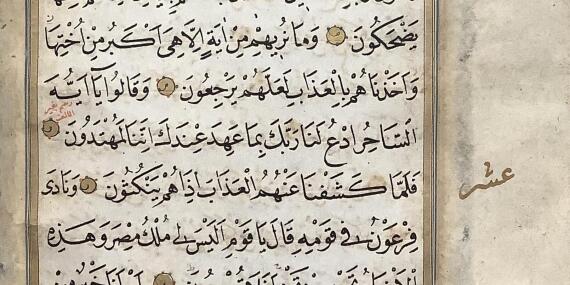 يَضْحَكُونَ وَمَا نُرِيهِمْ مِنْ اٰيَةٍ اِلَّا هِىَ اَكْبَرُ مِنْ اُخْتِهَا
وَاَخَذْنَاهُمْ بِالْعَذَابِ لَعَلَّهُمْ يَرْجِعُونَ وَقَالُوا يَا اَيُّهَ
السَّاحِرُ ادْعُ لَنَا رَبَّكَ بِمَا عَهِدَ عِنْدَكَ اِنَّنَا لَمُهْتَدُونَ
فَلَمَّا كَشَفْنَا عَنْهُمُ الْعَذَابَ اِذَا هُمْ يَنْكُثُونَ وَنَادٰى
عشر
فِرْعَوْنُ فِى قَوْمِهِ قَالَ يَا قَوْمِ اَلَيْسَ لِى مُلْكُ مِصْرَ وَهٰذِهِ